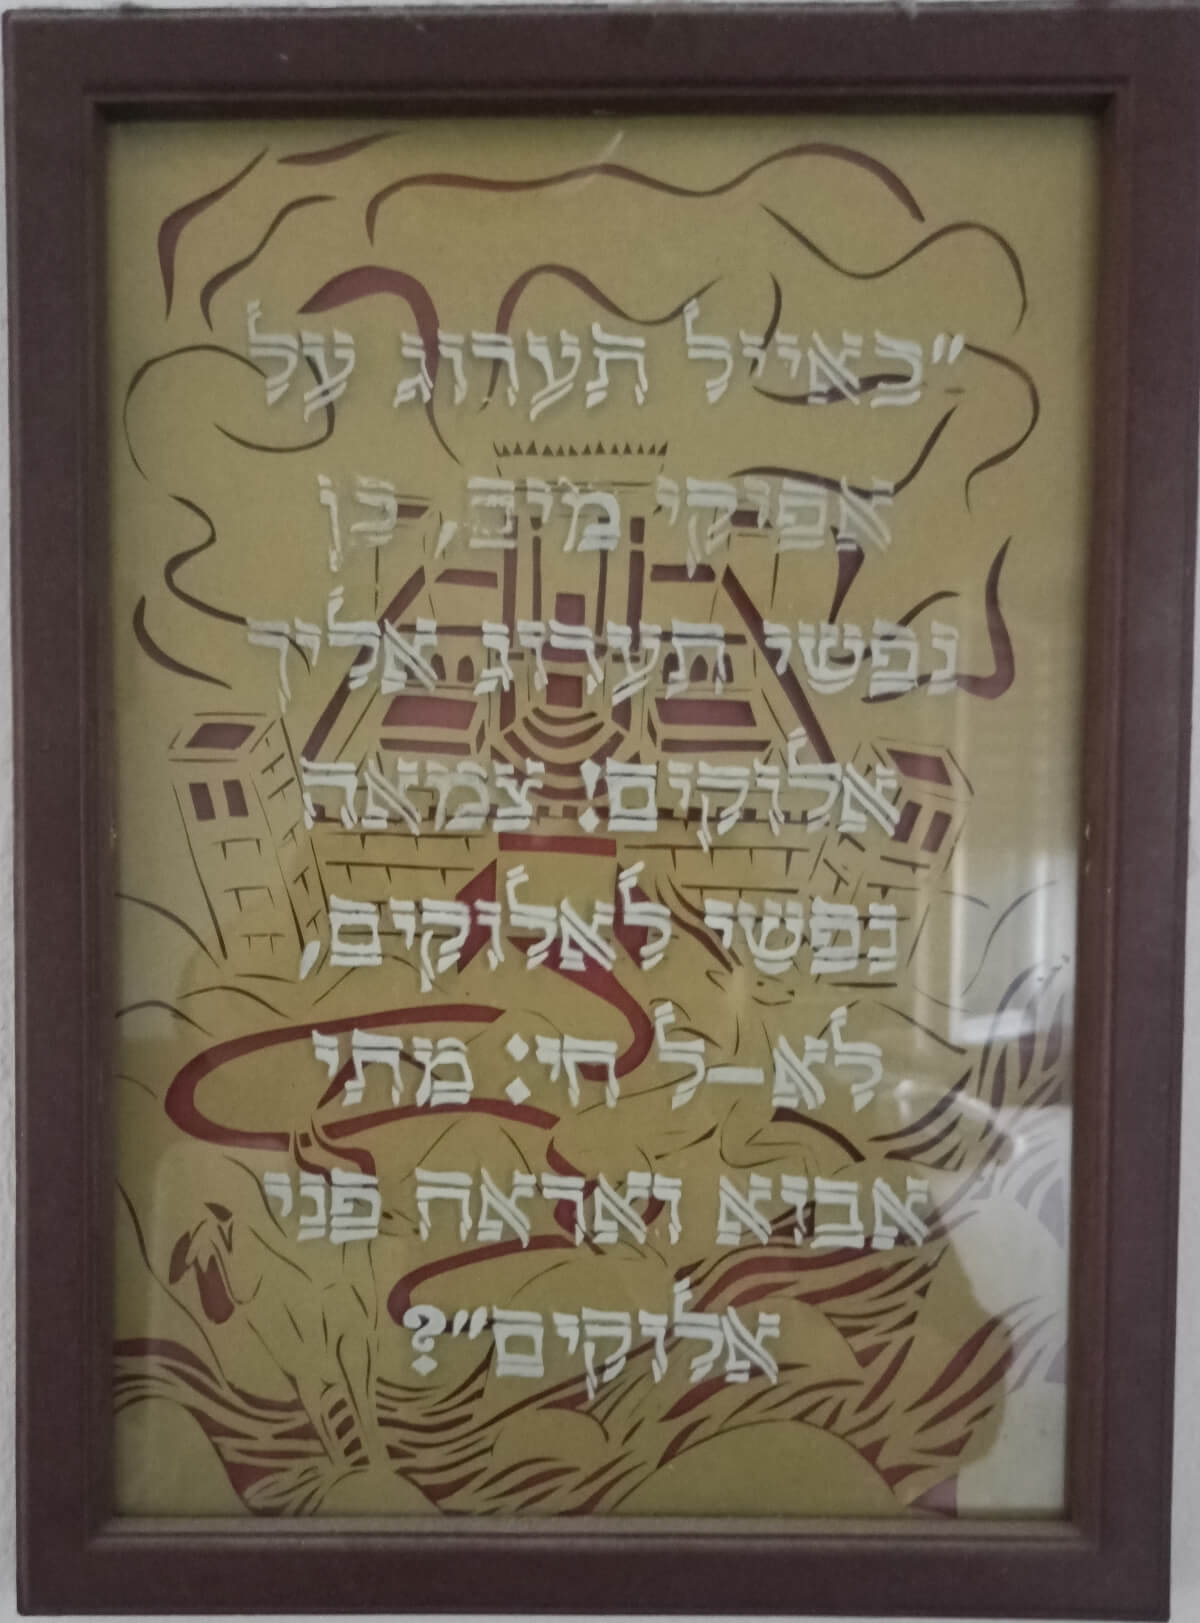 "כאייל תערוג על
אפיקי מים, כן
נפשי תערוג אליך
אלוקים! צמאה
נפשי לאלוקים,
לא-ל חי: מתי
אבוא ואראה פני
אלוקים"?